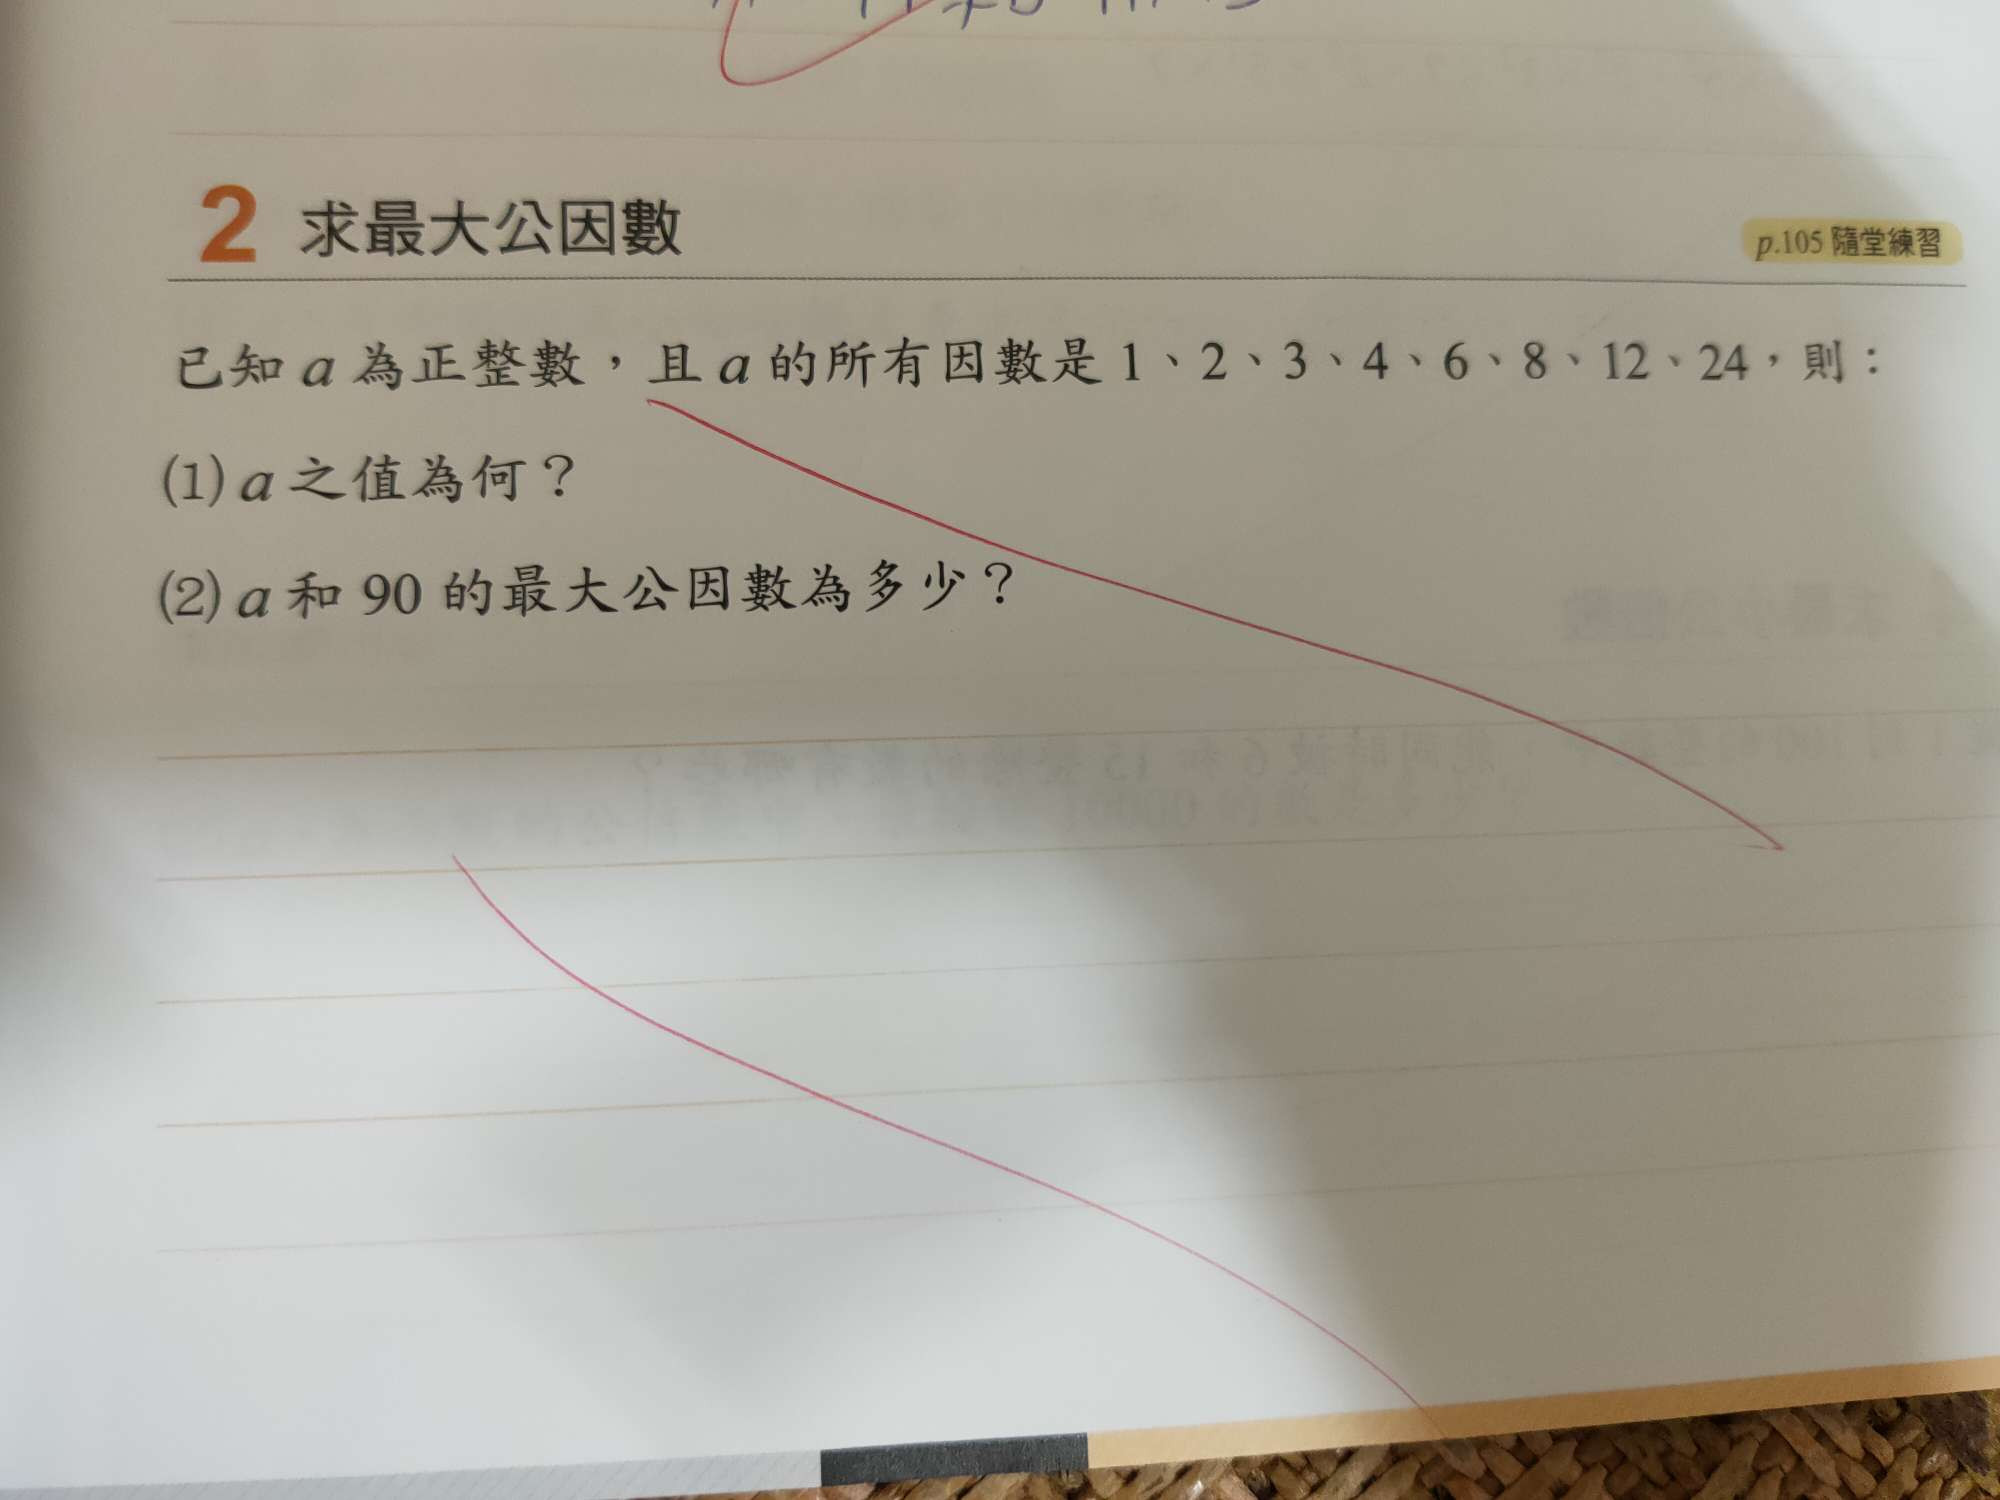 2 求最大公因數
p.105 隨堂練習
已知 a 為正整數，且 a 的所有因數是 1、2、3、4、6、8、12、24，則：
(1) a 之值為何？
(2) a 和 90 的最大公因數為多少？